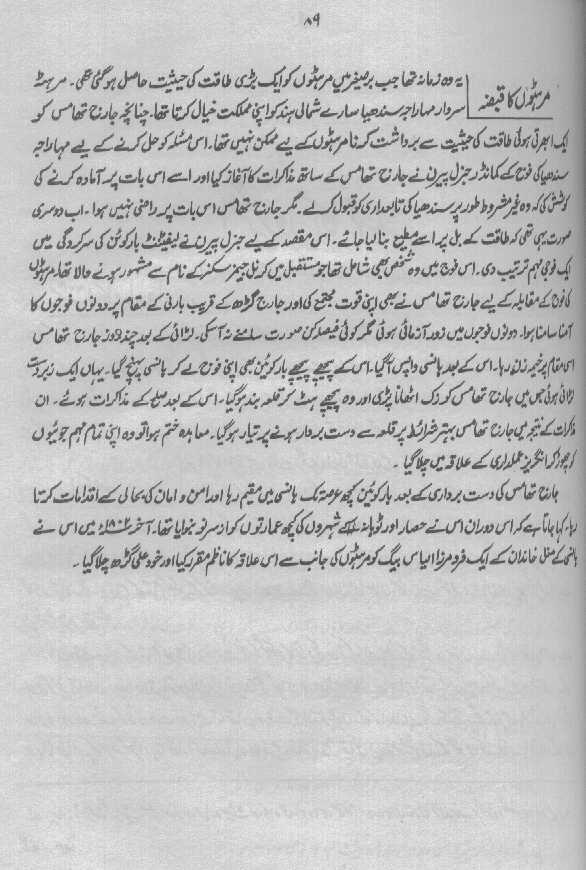 ۸۹
مرہٹوں کا قبضہ
یہ وہ زمانہ تھا جب برصغیر میں مرہٹوں کو ایک بڑی طاقت کی حیثیت حاصل ہو گئی تھی۔ مرہٹہ
سردار مہاراجہ سندھیا سارے شمالی ہند کو اپنی مملکت خیال کرتا تھا۔ چنانچہ جارج تھامس کو
ایک ابھرتی ہوئی طاقت کی حیثیت سے برداشت کرنا مرہٹوں کے لیے ممکن نہیں تھا۔ اس مسئلہ کو حل کرنے کے لیے مہاراجہ
سندھیا کی فوج کے کمانڈر جنرل پیرن نے جارج تھامس کے ساتھ مذاکرات کا آغاز کیا اور اسے اس بات پر آمادہ کرنے کی
کوشش کی کہ وہ غیر مشروط طور پر سندھیا کی تابعداری کو قبول کر لے۔ مگر جارج تھامس اس بات پر راضی نہیں ہوا۔ اب دوسری
صورت یہی تھی کہ طاقت کے بل پر اسے مطیع بنا لیا جائے۔ اس مقصد کے لیے جنرل پیرن نے لیفٹیننٹ بارکوئن کی سرکردگی میں
ایک فوجی مہم ترتیب دی۔ اس فوج میں وہ شخص بھی شامل تھا جو مستقبل میں کرنل جیمز سکنر کے نام سے مشہور ہونے والا تھا۔ مرہٹوں
کی فوج کے مقابلہ کے لیے جارج تھامس نے بھی اپنی قوت مجتمع کی اور جارج گڑھ کے قریب بارنی کے مقام پر دونوں فوجوں کا
آمنا سامنا ہوا۔ دونوں فوجوں میں زور آزمائی ہوئی مگر کوئی فیصلہ کن صورت سامنے نہ آسکی۔ لڑائی کے بعد چند روز جارج تھامس
اسی مقام پر خیمہ زن رہا۔ اس کے بعد ہانسی واپس آگیا۔ اس کے پیچھے پیچھے بارکوئین بھی اپنی فوج لے کر ہانسی پہنچ گیا۔ یہاں ایک زبردست
لڑائی ہوئی جس میں جارج تھامس کو زک اٹھانا پڑی اور وہ پیچھے ہٹ کر قلعہ بند ہو گیا۔ اس کے بعد صلح کے مذاکرات ہوئے۔ ان
مذاکرات کے نتیجہ میں جارج تھامس بہتر شرائط پر قلعہ سے دست بردار ہونے پر تیار ہو گیا۔ معاہدہ ختم ہوا تو وہ اپنی تمام مہم جوئیوں
کو چھوڑ کر انگریز عملداری کے علاقہ میں چلا گیا۔
جارج تھامس کی دست برداری کے بعد بارکوئین کچھ عرصہ تک ہانسی میں مقیم رہا اور امن و امان کی بحالی کے اقدامات کرتا
رہا۔ کہا جاتا ہے کہ اس دوران اس نے حصار اور ٹوہانہ شہروں کی کچھ عمارتوں کو از سر نو بنوایا تھا۔ آخر ۱۸۰۲ء میں اس نے
ہانسی کے مغل خاندان کے ایک فرد مرزا الیاس بیگ کو مرہٹوں کی جانب سے اس علاقہ کا ناظم مقرر کیا اور خود علی گڑھ چلا گیا۔